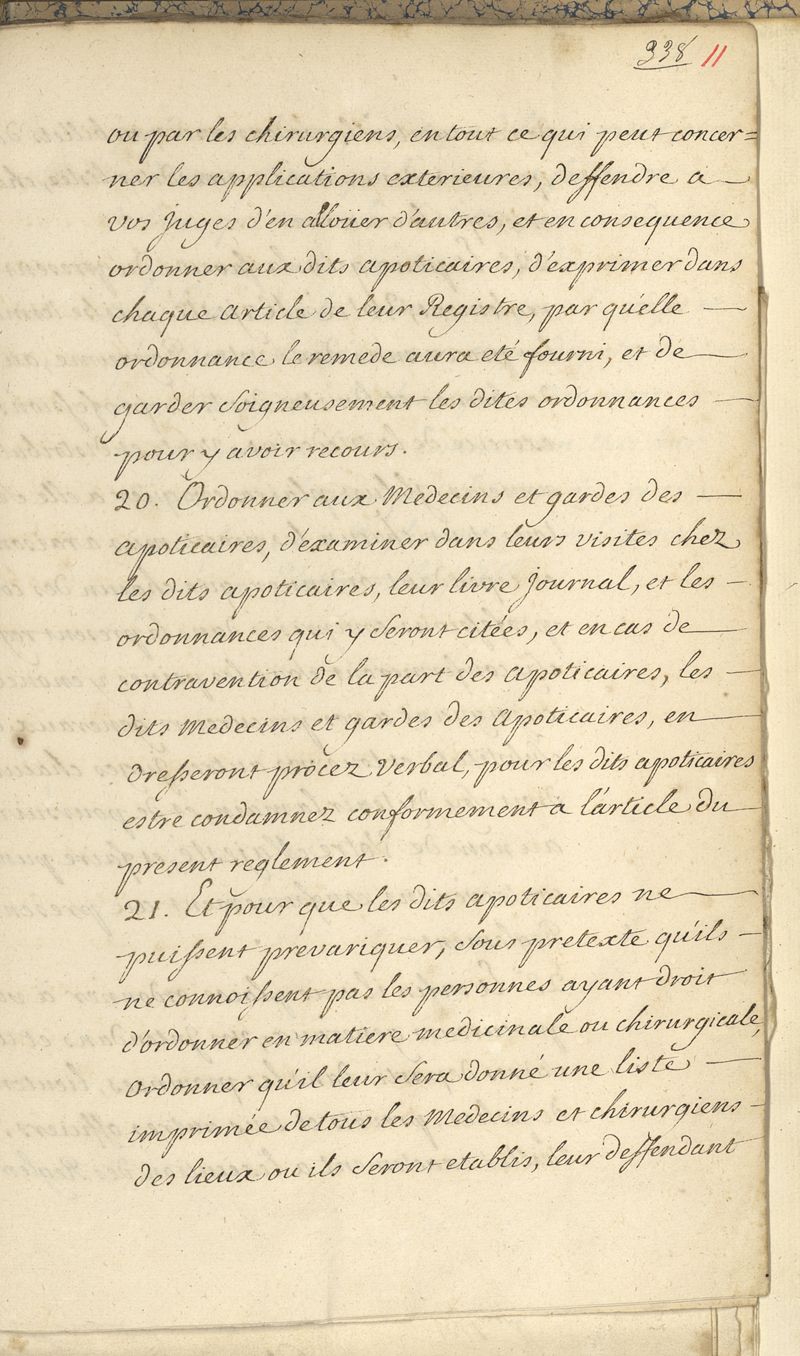 338 11
ou par les chirurgiens, en tout ce qui peut concer=
ner les applications exterieures, deffendre a
vos juges d'en alloüer d'autres, et en consequence
ordonner aux dits apoticaires, d'exprimer dans
chaque article de leur Registre, par qu'elle
ordonnance le remede aura eté fourni, et de
garder soigneusement les dites ordonnances
pour y avoir recours.
20. Ordonner aux Medecins et gardes des
apoticaires, d'examiner dans leurs visites chez
les dits apoticaires, leur livre journal, et les
ordonnances qui y seront citées, et en cas de
contravention de la part des apoticaires, les
dits Medecins et gardes des apoticaires, en
dresseront procez verbal, pour les dits apoticaires
estre condamnez conformement a l'article du
present reglement.
21. Et pour que les dits apoticaires ne
puissent prevariquer, sous pretexte qu'ils
ne connoissent pas les personnes ayant droit
d'ordonner en matiere medicinale ou chirurgicale,
Ordonner qu'il leur sera donné une liste
imprimée de tous les Medecins et chirurgiens
des lieux ou ils seront etablis, leur deffendant